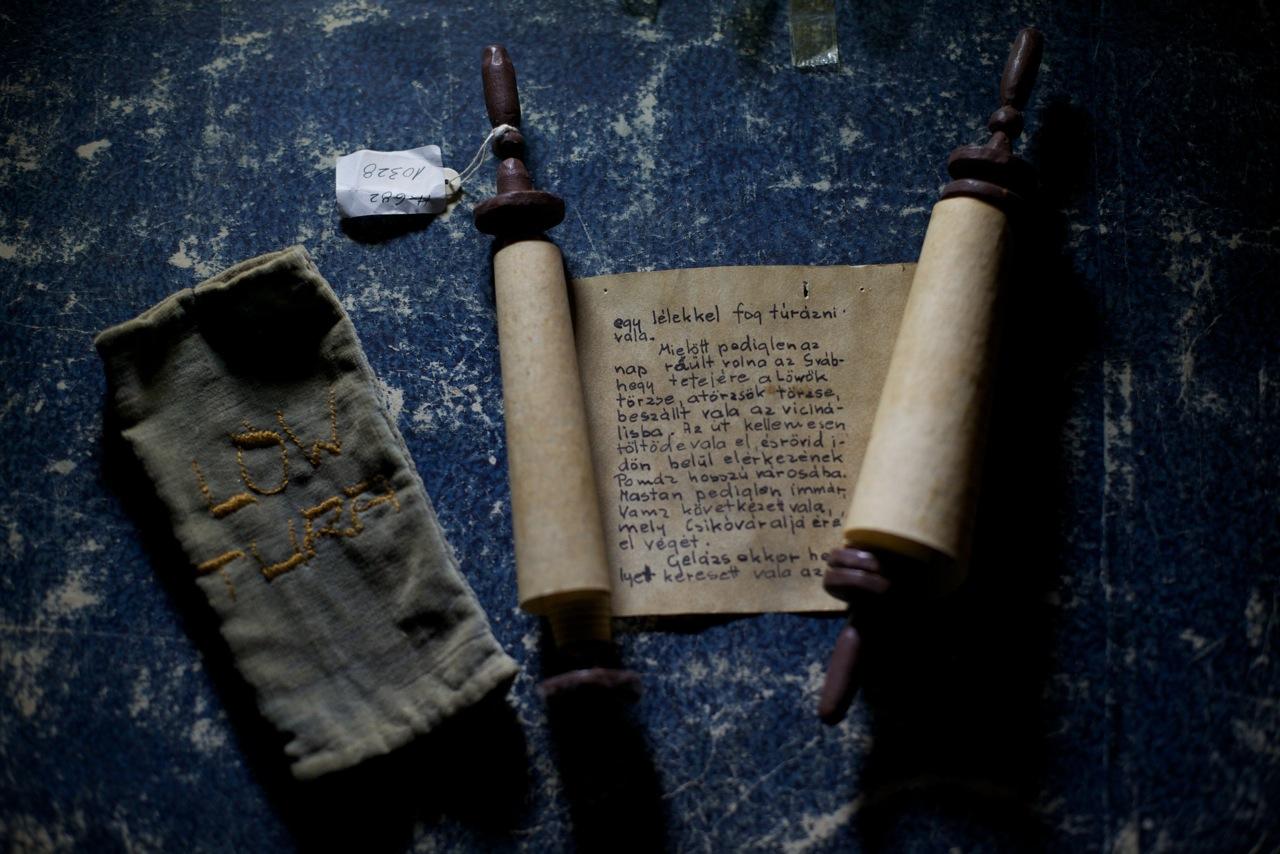 10328
H-682
LÖW
TÚRA
egy lélekkel fog túrázni.
vala.
Mielőtt pediglen az
nap ráült volna az Sváb-
hegy tetejére a Löwök
törzse, a törzsök törzse,
beszállt vala az viciná-
lisba. Az út kellemesen
töltőde vala el, és rövid i-
dőn belül elérkezének
Pomáz hosszú városába.
Mastan pediglen immár
Vamz következet vala,
mely Csikóváraljá ére
el végét.
Gelázs okkor he
lyet keresett vala az